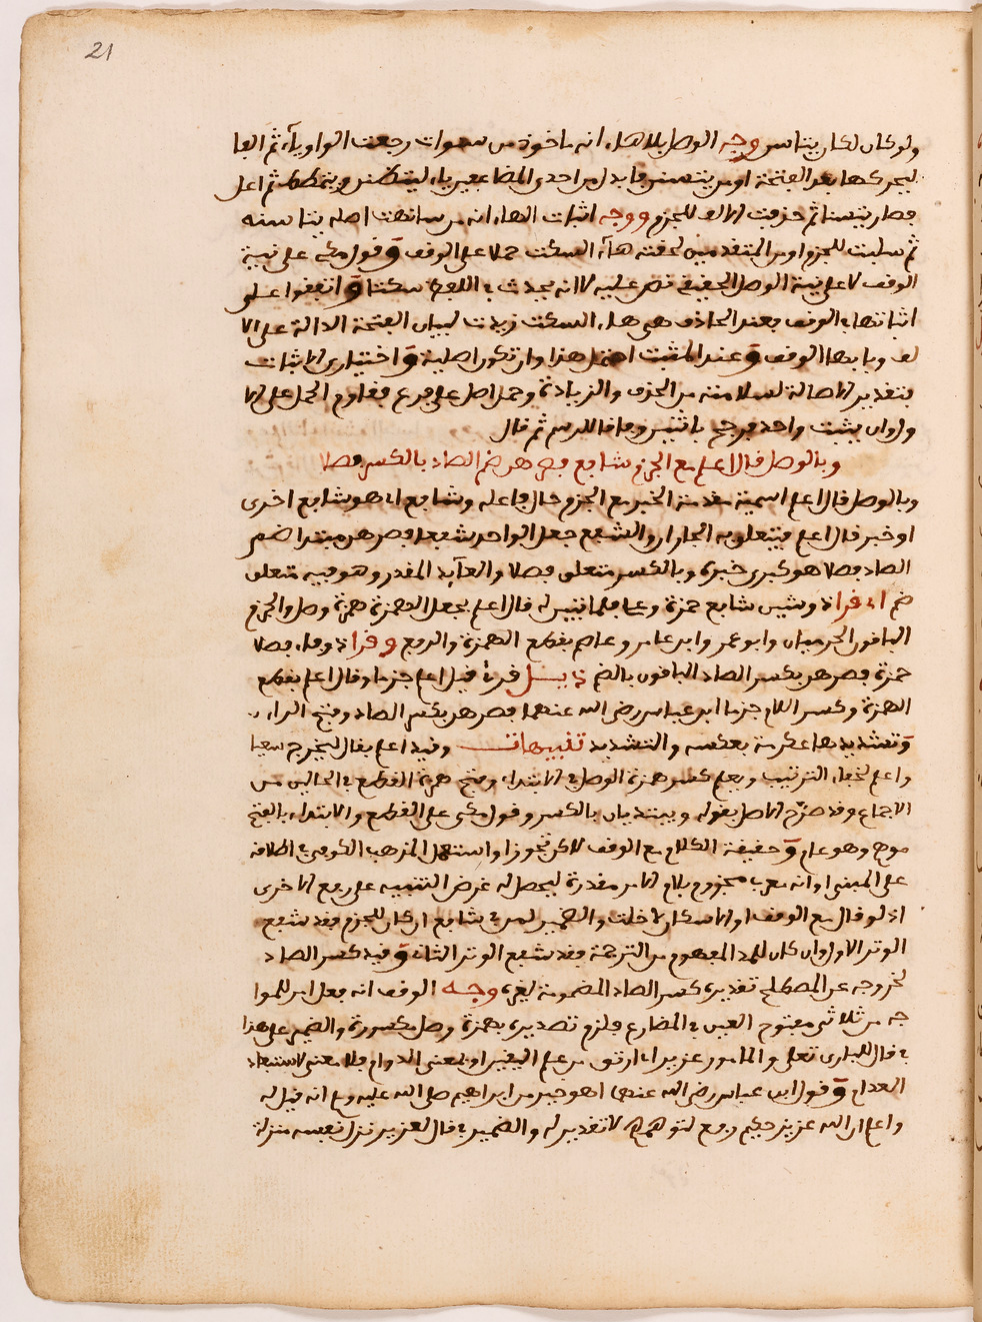 21
ولو كان لكان يتاسن وجه الوصل بلا هاء انه ماخوذ من سنوات رجعت الواو ياء ثم الفا
لتحركها بعد الفتحة او من يتسنن فابدل من احدى المضاعفين ياء ليتظنن ويتمطط ثم اعل
فصار يتسنا ثم حذفت الالف للجزم ووجه اثبات الهاء انه من سانهت اصله يتاسنه
ثم سكنت للجزم او من المتقدمين لحقته هاء السكت حملا على الوقف وقول مكي على نية
الوقف لا على نية الوصل الحقيقي نص عليه لانه يحدث في اللفظ سكتا واتفقوا على
اثباتها في الوقف فعند الحاذف هي هاء السكت زيدت لبيان الفتحة الدالة على الا
لف وبابها الوقف وعند المثبت احتمل هذا وان تكون اصلية واختياري الاثبات
بتقدير الاصالة لسلامته من الحذف والزيادة وحمل اصل على فرع فقاوم الحمل على الا
ول وان يثبت واحد فرجح باثنين وفاقا للرسم ثم قال
وبالوصل قال اعلم مع الجزم شافع فصرهن ضم الصاد بالكسر فصلا
وبالوصل قال اعلم اسمية مقدمة الخبر مع الجزم حال فاعله وشافع اي هو شافع اخرى
او خبر قال اعلم فيتعلق به الجاران والشفع جعل الواحد شفعا فصرهن مبتدا ضم
الصاد فصلا هو كبرى خبره وبالكسر متعلق فصلا والعايد المقدر وهو فيه متعلق
ضم اي قرا ذو شين شافع حمزة وعلي فلما تبين له قال اعلم بجعل الهمزة همزة وصل والجزم
الباقون الحرميان وابو عمرو وابن عامر وعاصم بقطع الهمزة والرفع وقرا ذو فاء فصلا
حمزة فصرهن بكسر الصاد الباقون بالضم تذييل قرئ قيل اعلم جزما وقال اعلم بقطع
الهمزة وكسر اللام جزما ابن عباس رضي الله عنهما فصرهن بكسر الصاد وفتح الراء
وتشديدها عكرمة بعكسه والتشديد تنبيهات وقيد اعلم بقال ليخرج
واعلم لخفاء الترتيب ويعلم كسر همزة الوصل في الابتداء وفتح همزة القطع في الحالين من
الاجماع وقد صرح الاصل بقوله ويبتديان بالكسر وقول مكي على القطع والابتداء بالفتح
موهم وهو عام وحقيقة الكلام مع الوقف لاكن تجوز واستعمل المذهب الكوفي في اطلاقه
على المبني او انه معرب مجزوم بلام الامر مقدرة ليحصل له غرض التنبيه على رفع الاخرى
اذ لو قال مع الوقف او الاسكان لاخلت والضمير لمن في شافع ان كان للجزم فقد شفع
الوتر الاول وان كان للمد المفهوم من الترجمة فقد شفع الوتر الثاني وقيد كسر الصاد
لخروجه عن المصطلح تقديره كسر الصاد المضمومة لغيره وجه الوقف انه فعل امر للموا
جه من ثلاثي مفتوح العين في المضارع فلزم تصديره بهمزة وصل مكسورة والضمير على هذا
في قال للباري تعلى والمامور عزير اي ارتق من علم اليقين او بمعنى الدوام فلا معنى لاستبعاد
العدام وقول ابن عباس رضي الله عنهما اهو خير من ابراهيم صلى الله عليه وسلم انه قيل له
واعلم ان الله عزيز حكيم رفع لتوهم لا تقدير له والضمير في قال لعزير نزل نفسه منزلة